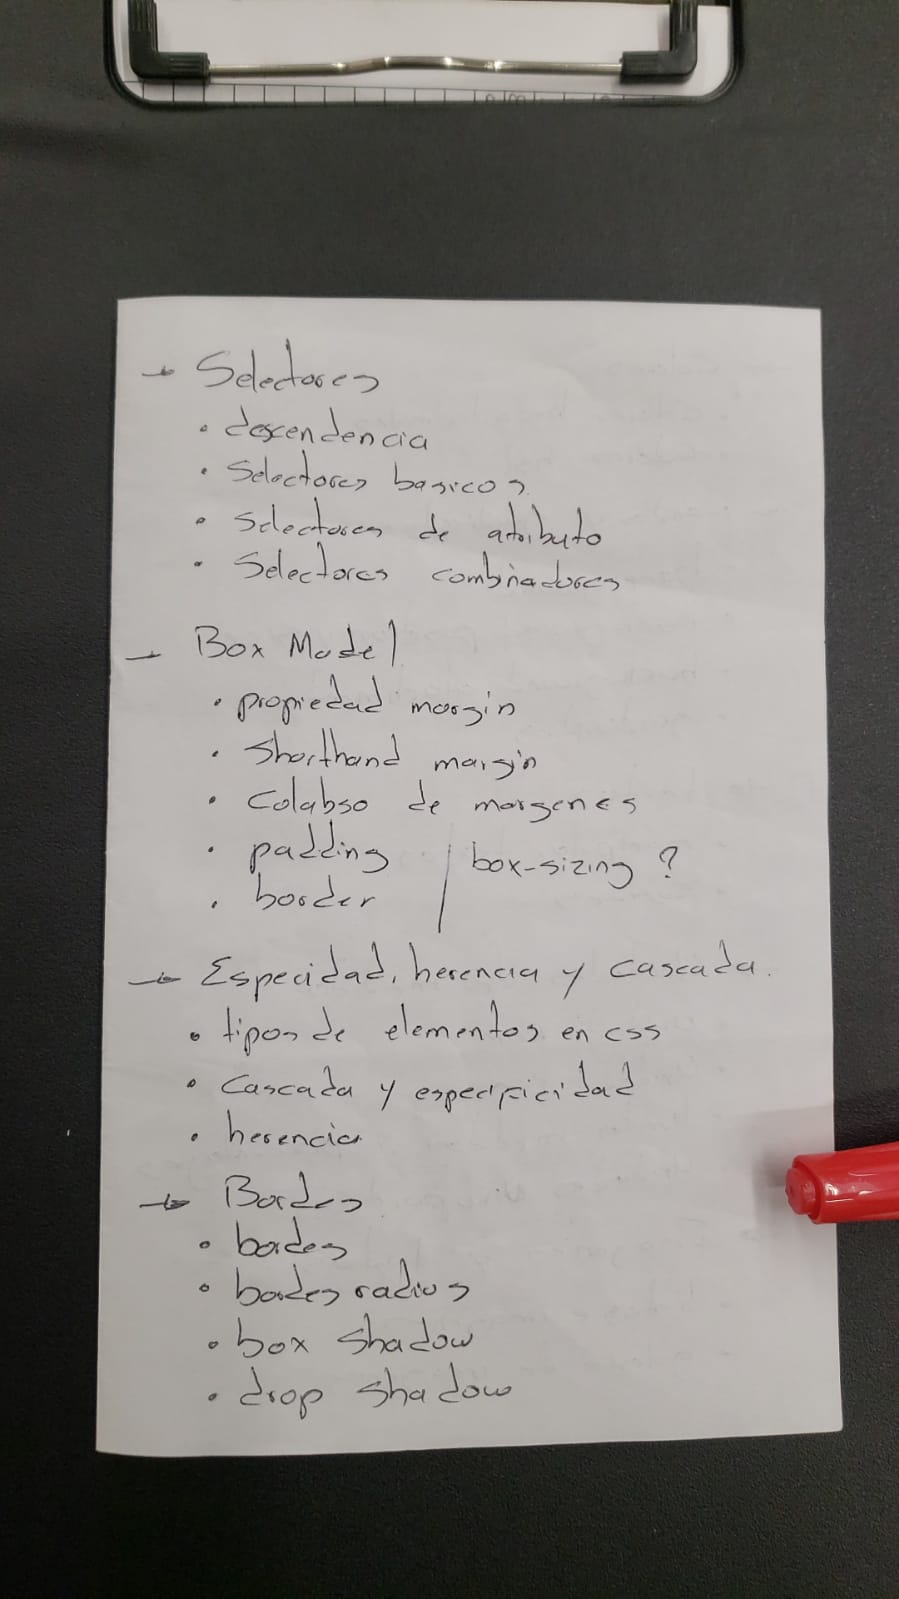 → Selectores
• descendencia
• Selectores basicos
• Selectores de atributo
• Selectores combinadores
→ Box Model
• propiedad margin
• Shorthand margin
• Colabso de margenes
• padding | box-sizing ?
• border
→ Especidad, herencia y cascada.
• tipos de elementos en css
• Cascada y especificidad
• herencia
→ Bordes
• bordes
• bordes radius
• box shadow
• drop shadow